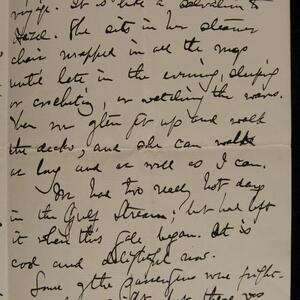 voyage. It is like a salvation to
Hazel. She sits in her steamer
chair wrapped in all the rugs
until late in the evening, sleeping
or crocheting, or watching the waves.
Then we often get up and walk
the decks, and she can walk
as long and as well as I can.
We had two really hot days
in the Gulf Stream; but had left
it when this gale began. It is
cool and delightful now.
Some of the passengers were fright-